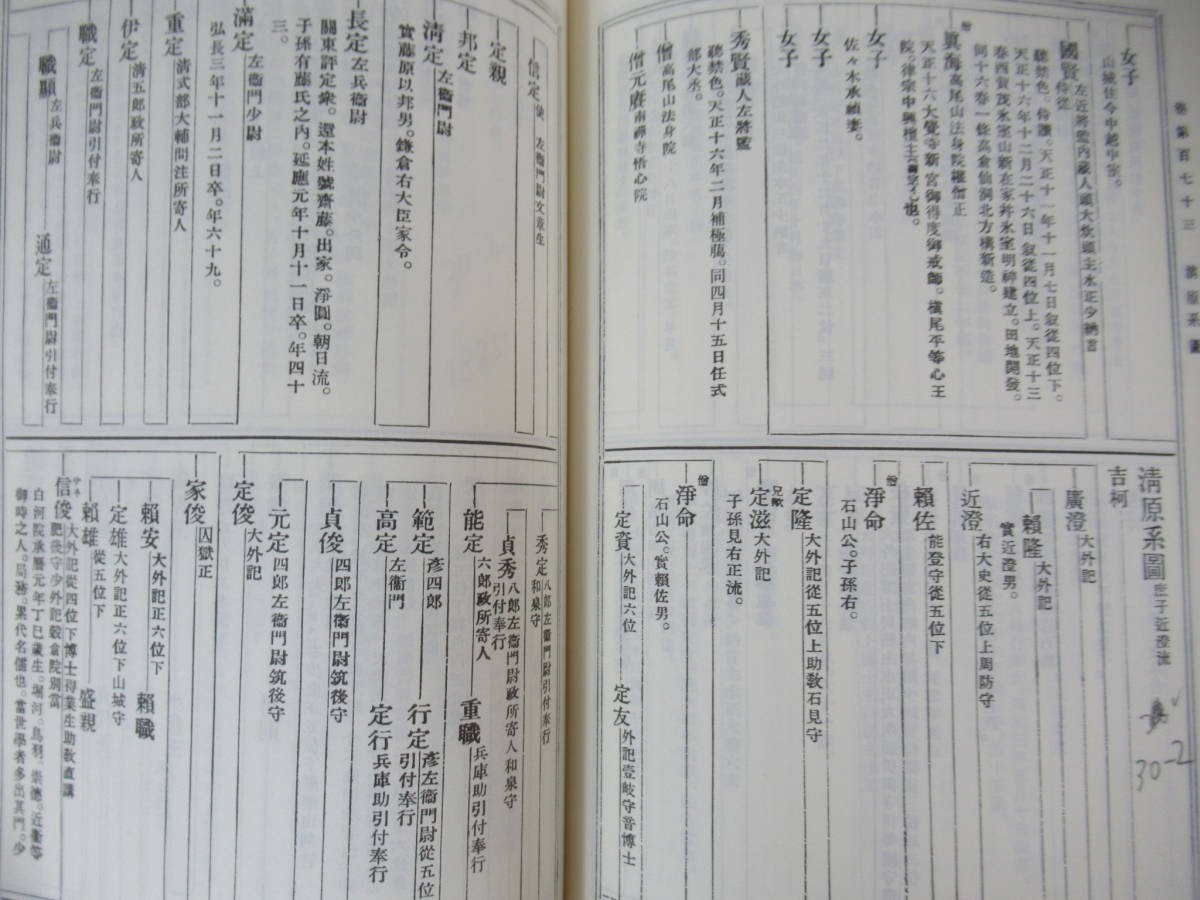 卷第百七十三 淸原系圖
女子
山城住今中越中室。
國賢 侍從
左近將監內藏人頭大炊頭主水正少納言
聽禁色。侍讀。天正十一年十一月七日敍從四位下。
天正十六年十二月二十六日敍從四位上。天正十三
春西賀茂氷室山新在家幷氷室明神建立。田地開發。
同十六春一條高倉仙洞北方構新造。
僧
眞海 高尾山法身院權僧正
天正十六大覺寺新宮御得度御戒師。槇尾平等心王
院。律宗中興檀主
女子
佐々木承禎妻。
女子
女子
秀賢 藏人左將監
聽禁色。天正十六年二月補極﨟。同四月十五日任式
部大丞。
僧 高尾山法身院
僧 元賡 南禪寺悟心院
淸原系圖 庶子近澄流
30-2
吉柯
廣澄 大外記
賴隆 大外記
實近澄男。
近澄 右大史從五位上周防守
賴佐 能登守從五位下
僧
淨命
石山公。子孫右。
定隆 大外記從五位上助敎石見守
兄歟
定滋 大外記
子孫見右正流。
僧
淨命
石山公。實賴佐男。
定資 大外記六位
定友 外記壹岐守音博士
信定 使 左衞門尉文章生
定親
邦定
淸定 左衞門尉
實藤原以邦男。鎌倉右大臣家令。
長定 左兵衞尉
關東評定衆。還本姓號齋藤。出家。淨圓。朝日流。
子孫有藤氏之內。延應元年十月十一日卒。年四十
三。
滿定 左衞門少尉
弘長三年十一月二日卒。年六十九。
重定 淸式部大輔問注所寄人
伊定 淸五郎政所寄人
職定 左衞門尉引付奉行
職顯 左兵衞尉
通定 左衞門尉引付奉行
秀定 八郎左衞門尉引付奉行
和泉守
貞秀 八郎左衞門尉政所寄人和泉守
引付奉行
能定 六郎政所寄人
重職 兵庫助引付奉行
範定 彥四郎
行定 彥左衞門尉從五位
引付奉行
高定 左衞門
定行 兵庫助引付奉行
貞俊 四郎左衞門尉筑後守
元定 四郎左衞門尉筑後守
定俊 大外記
家俊 囚獄正
賴安 大外記正六位下
賴職
定雄 大外記正六位下山城守
賴雄 從五位下
盛親
サネ
信俊 大外記從四位下博士得業生助敎直講
肥後守少外記穀倉院別當
白河院承曆元年丁巳歲生。堀河。鳥羽。崇德。近衞等
御時之人。局務。累代名儒也。當世學者多出其門。少